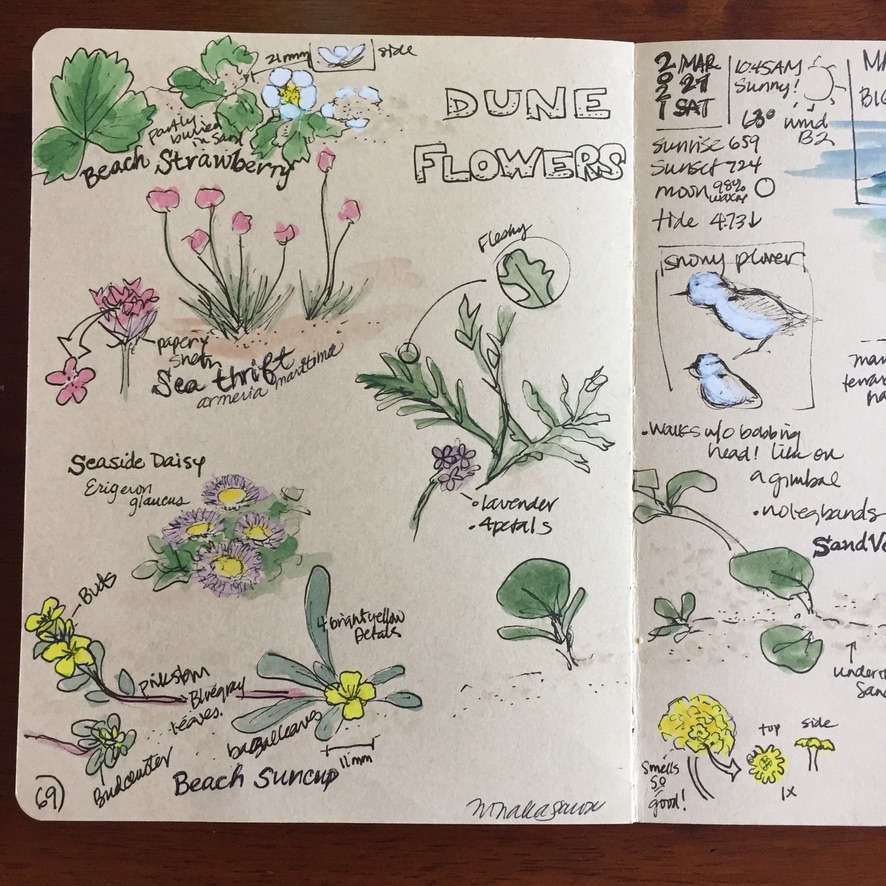 21mm
side
partly
buried
in sand
Beach Strawberry
DUNE
FLOWERS
papery
sheath
Sea thrift
armeria maritima
Fleshy
•lavender
•4petals
Seaside Daisy
Erigeron
glaucus
Buds
pinkstem
Bluegray
leaves.
4 bright yellow
petals
basal leaves
11mm
Bud center
Beach Suncup
69
2 MAR
0 27
2
1 SAT
10:45AM
Sunny!
63°
wind
B2
sunrise 659
Sunset 724
moon 98%
waxing
tide 4.73↓
snowy plover
•Walks w/o bobbing
head! like on
a gimbal
•no leg bands
Sand Ve
under th
San
Smells
so
good!
top
side
1x
MA
BIG